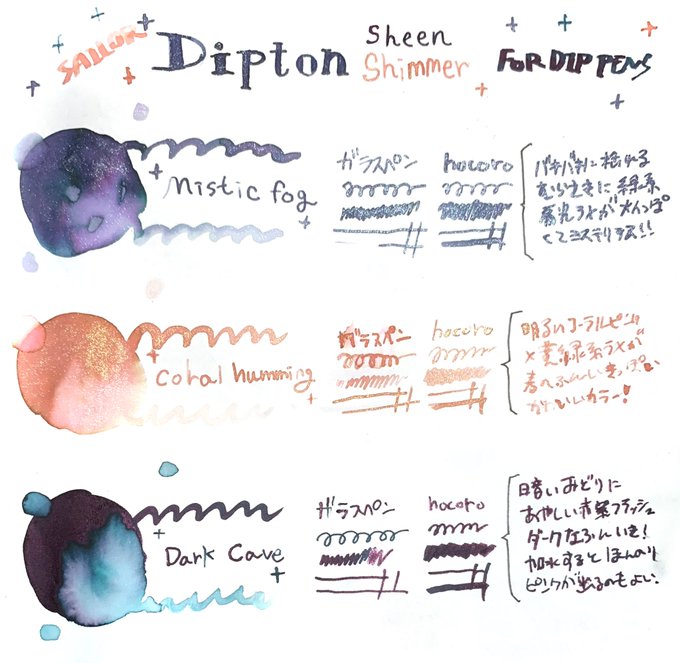 SAILOR Dipton Sheen Shimmer FOR DIP PENS
Mistic fog
ガラスペン hocoro
バキバキに
緑系
ラメが
くてミステリアス!!
coral humming
ガラスペン hocoro
明るいコーラルピンク
×黄緑系ラメが
春
かわいいカラー!
Dark Cave
ガラスペン hocoro
暗いみどりに
あやしい赤紫フラッシュ
ダークなふんいき!
加水するとほんのり
ピンクが出るのもよい!